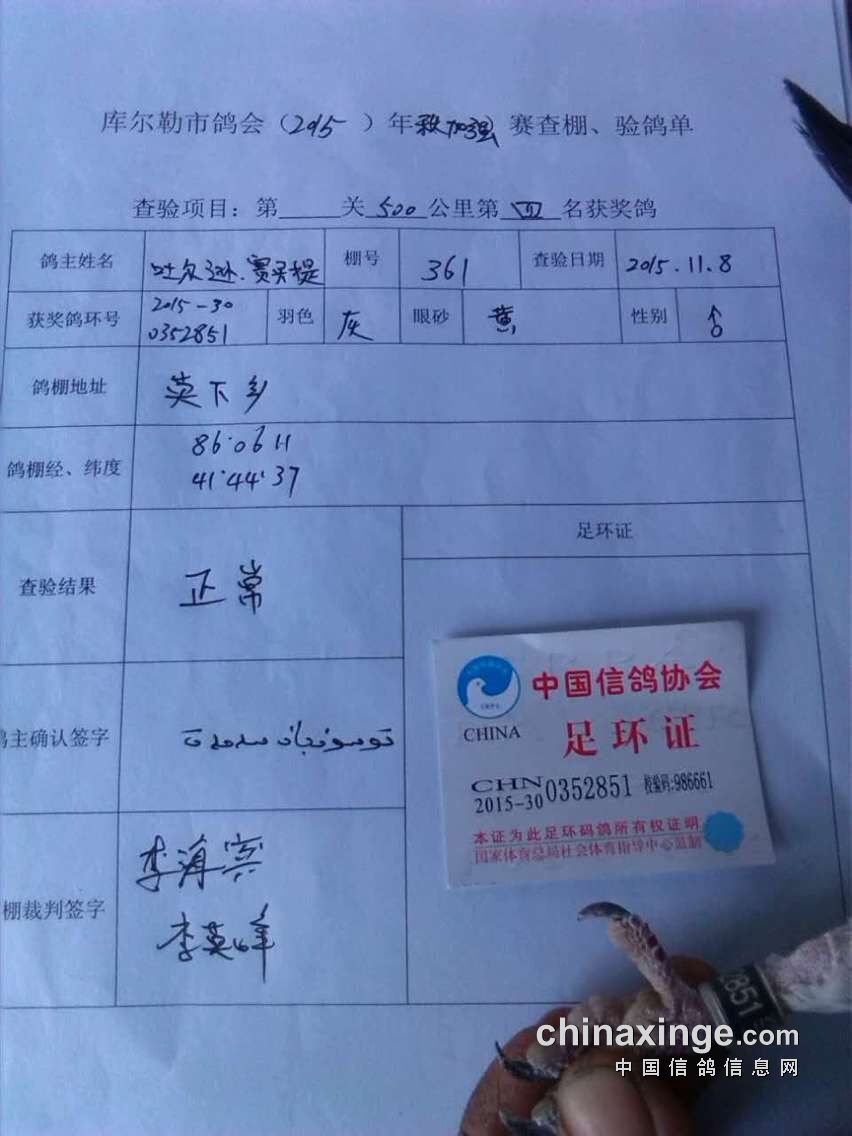 库尔勒市鸽会（2015）年秋加强赛查棚、验鸽单
查验项目：第____关 500 公里第 四 名获奖鸽
鸽主姓名 吐尔逊. 棚号 361 查验日期 2015.11.8
获奖鸽环号 2015-30 0352851 羽色 灰 眼砂 黄 性别 ♂
鸽棚地址 英下乡
鸽棚经、纬度 86·06 11
41·44·37
足环证
查验结果 正常
鸽主确认签字
棚裁判签字 李海宾
李英峰
中国信鸽协会
CHINA 足环证
CHN
2015-30 0352851 校验码:986661
本证为此足环码鸽所有权证明
国家体育总局社会体育指导中心监制
2851
chinaxinge.com
中国信鸽信息网